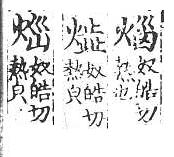 奴皓切
熱也
奴皓切
熱皃
奴皓切
熱皃